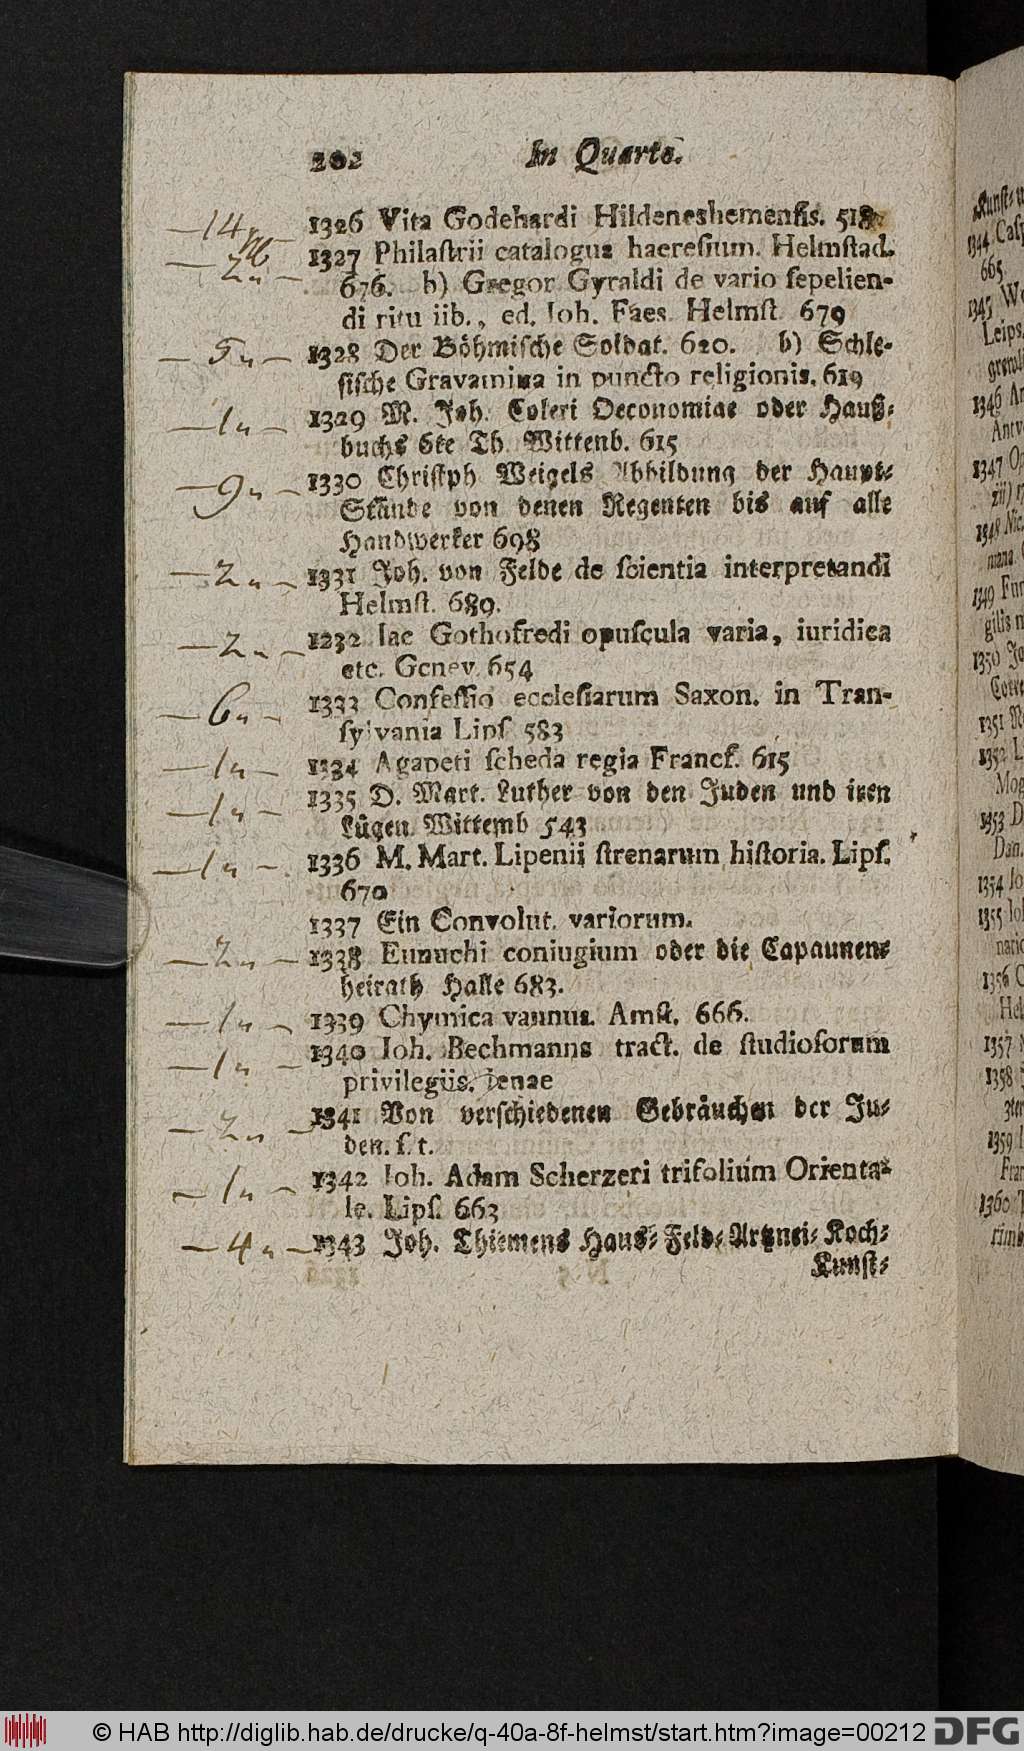 202 In Quarto.
— 14 — 1326 Vita Godehardi Hildeneshemensis. 518
— 2 „ — 1327 Philastrii catalogus haeresium. Helmstad.
676. b) Gregor Gyraldi de vario sepelien-
di ritu lib., ed. Joh. Faes Helmst. 679
— 5 „ — 1328 Der Böhmische Soldat. 620. b) Schle-
sische Gravamina in puncto religionis. 619
— 1 „ — 1329 M. Joh. Coleri Oeconomiae oder Hauß-
buchs 6te Th. Wittenb. 615
— 9 „ — 1330 Christph Weigels Abbildung der Haupt-
Stände von denen Regenten bis auf alle
Handwerker 698
— 2 „ — 1331 Joh. von Felde de scientia interpretandi
Helmst. 689.
— 2 „ — 1232 Iac Gothofredi opuscula varia, iuridica
etc. Genev. 654
— 6 „ — 1333 Confessio ecclesiarum Saxon. in Tran-
sylvania Lips 583
— 1 „ — 1334 Agapeti scheda regia Francf. 615
— 1 „ — 1335 D. Mart. Luther von den Juden und iren
Lügen Wittemb 543
— 1 „ — 1336 M. Mart. Lipenii strenarum historia. Lips.
670
1337 Ein Convolut. variorum.
— 2 „ — 1338 Eunuchi coniugium oder die Capaunen-
heirath Halle 683.
— 1 „ — 1339 Chymica vannus. Amst. 666.
— 1 „ — 1340 Ioh. Bechmanns tract. de studiosorum
privilegiis. ienae
— 2 „ — 1341 Von verschiedenen Gebräuchen der Ju-
den. s. t.
— 1 „ — 1342 Ioh. Adam Scherzeri trifolium Orienta-
le. Lips. 663
— 4 „ — 1343 Joh. Thiemens Haus- Feld- Artznei- Koch-
Kunst-
1344
665.
Leips
1346
Antv
1347
1348
1349
gilis
1350
1351
1352
Mog
1353
Dan.
1354
1355
1356
Hel
1357
1358
1359
Fran
1360
© HAB http://diglib.hab.de/drucke/q-40a-8f-helmst/start.htm?image=00212 DFG